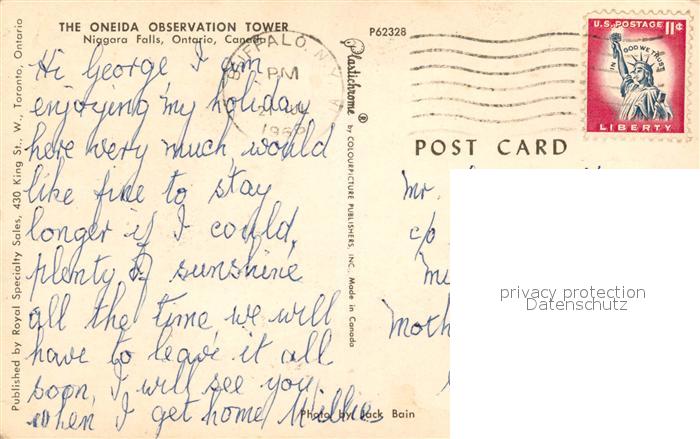 THE ONEIDA OBSERVATION TOWER
Niagara Falls, Ontario, Canada
P62328
Hi George I am
enjoying my holiday
here very much, would
like fine to stay
longer if I could,
plenty of sunshine
all the time, we will
have to leave it all
soon, I will see you
when I get home Willie
Photo by Jack Bain
Published by Royal Specialty Sales, 430 King St., W., Toronto, Ontario
Plastichrome ® by COLOURPICTURE PUBLISHERS, INC., Made in Canada
BUFFALO, N.Y.
PM
U.S. POSTAGE 11¢
IN GOD WE TRUST
LIBERTY
POST CARD
Mr.
c/o
Moth
privacy protection
Datenschutz